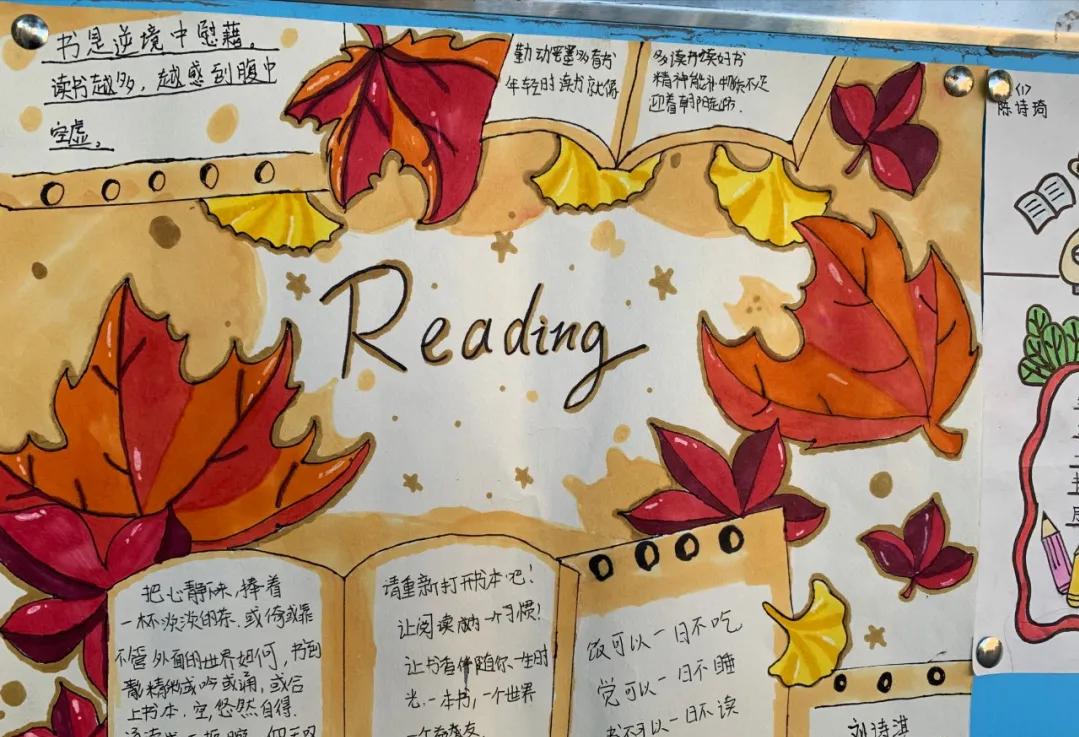 书是逆境中慰藉。
读书越多，越感到腹中
空虚。
勤动笔墨多看书
年轻时读书就像
多读书读好书
精神能补物质不足
迎着朝阳
(1)
陈诗琦
Reading
把心静下来，捧着
一杯淡淡的茶.或倚或靠
不管外面的世界如何，书到
精彩处或吟或诵，或合
上书本，空，悠然自得.
请重新打开书本吧！
让阅读成为一个习惯！
让书香伴随你一生时
光.一本书，一个世界
饭可以一日不吃
觉可以一日不睡
书不可以一日不读
刘诗淇